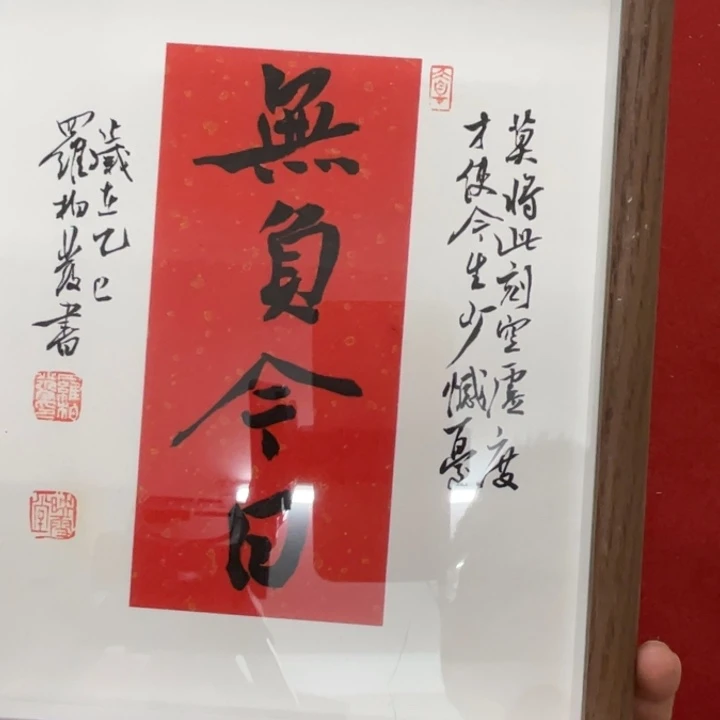 莫將此刻空虛度
才使今生少憾憂
無負今日
歲在乙巳
羅柏發書